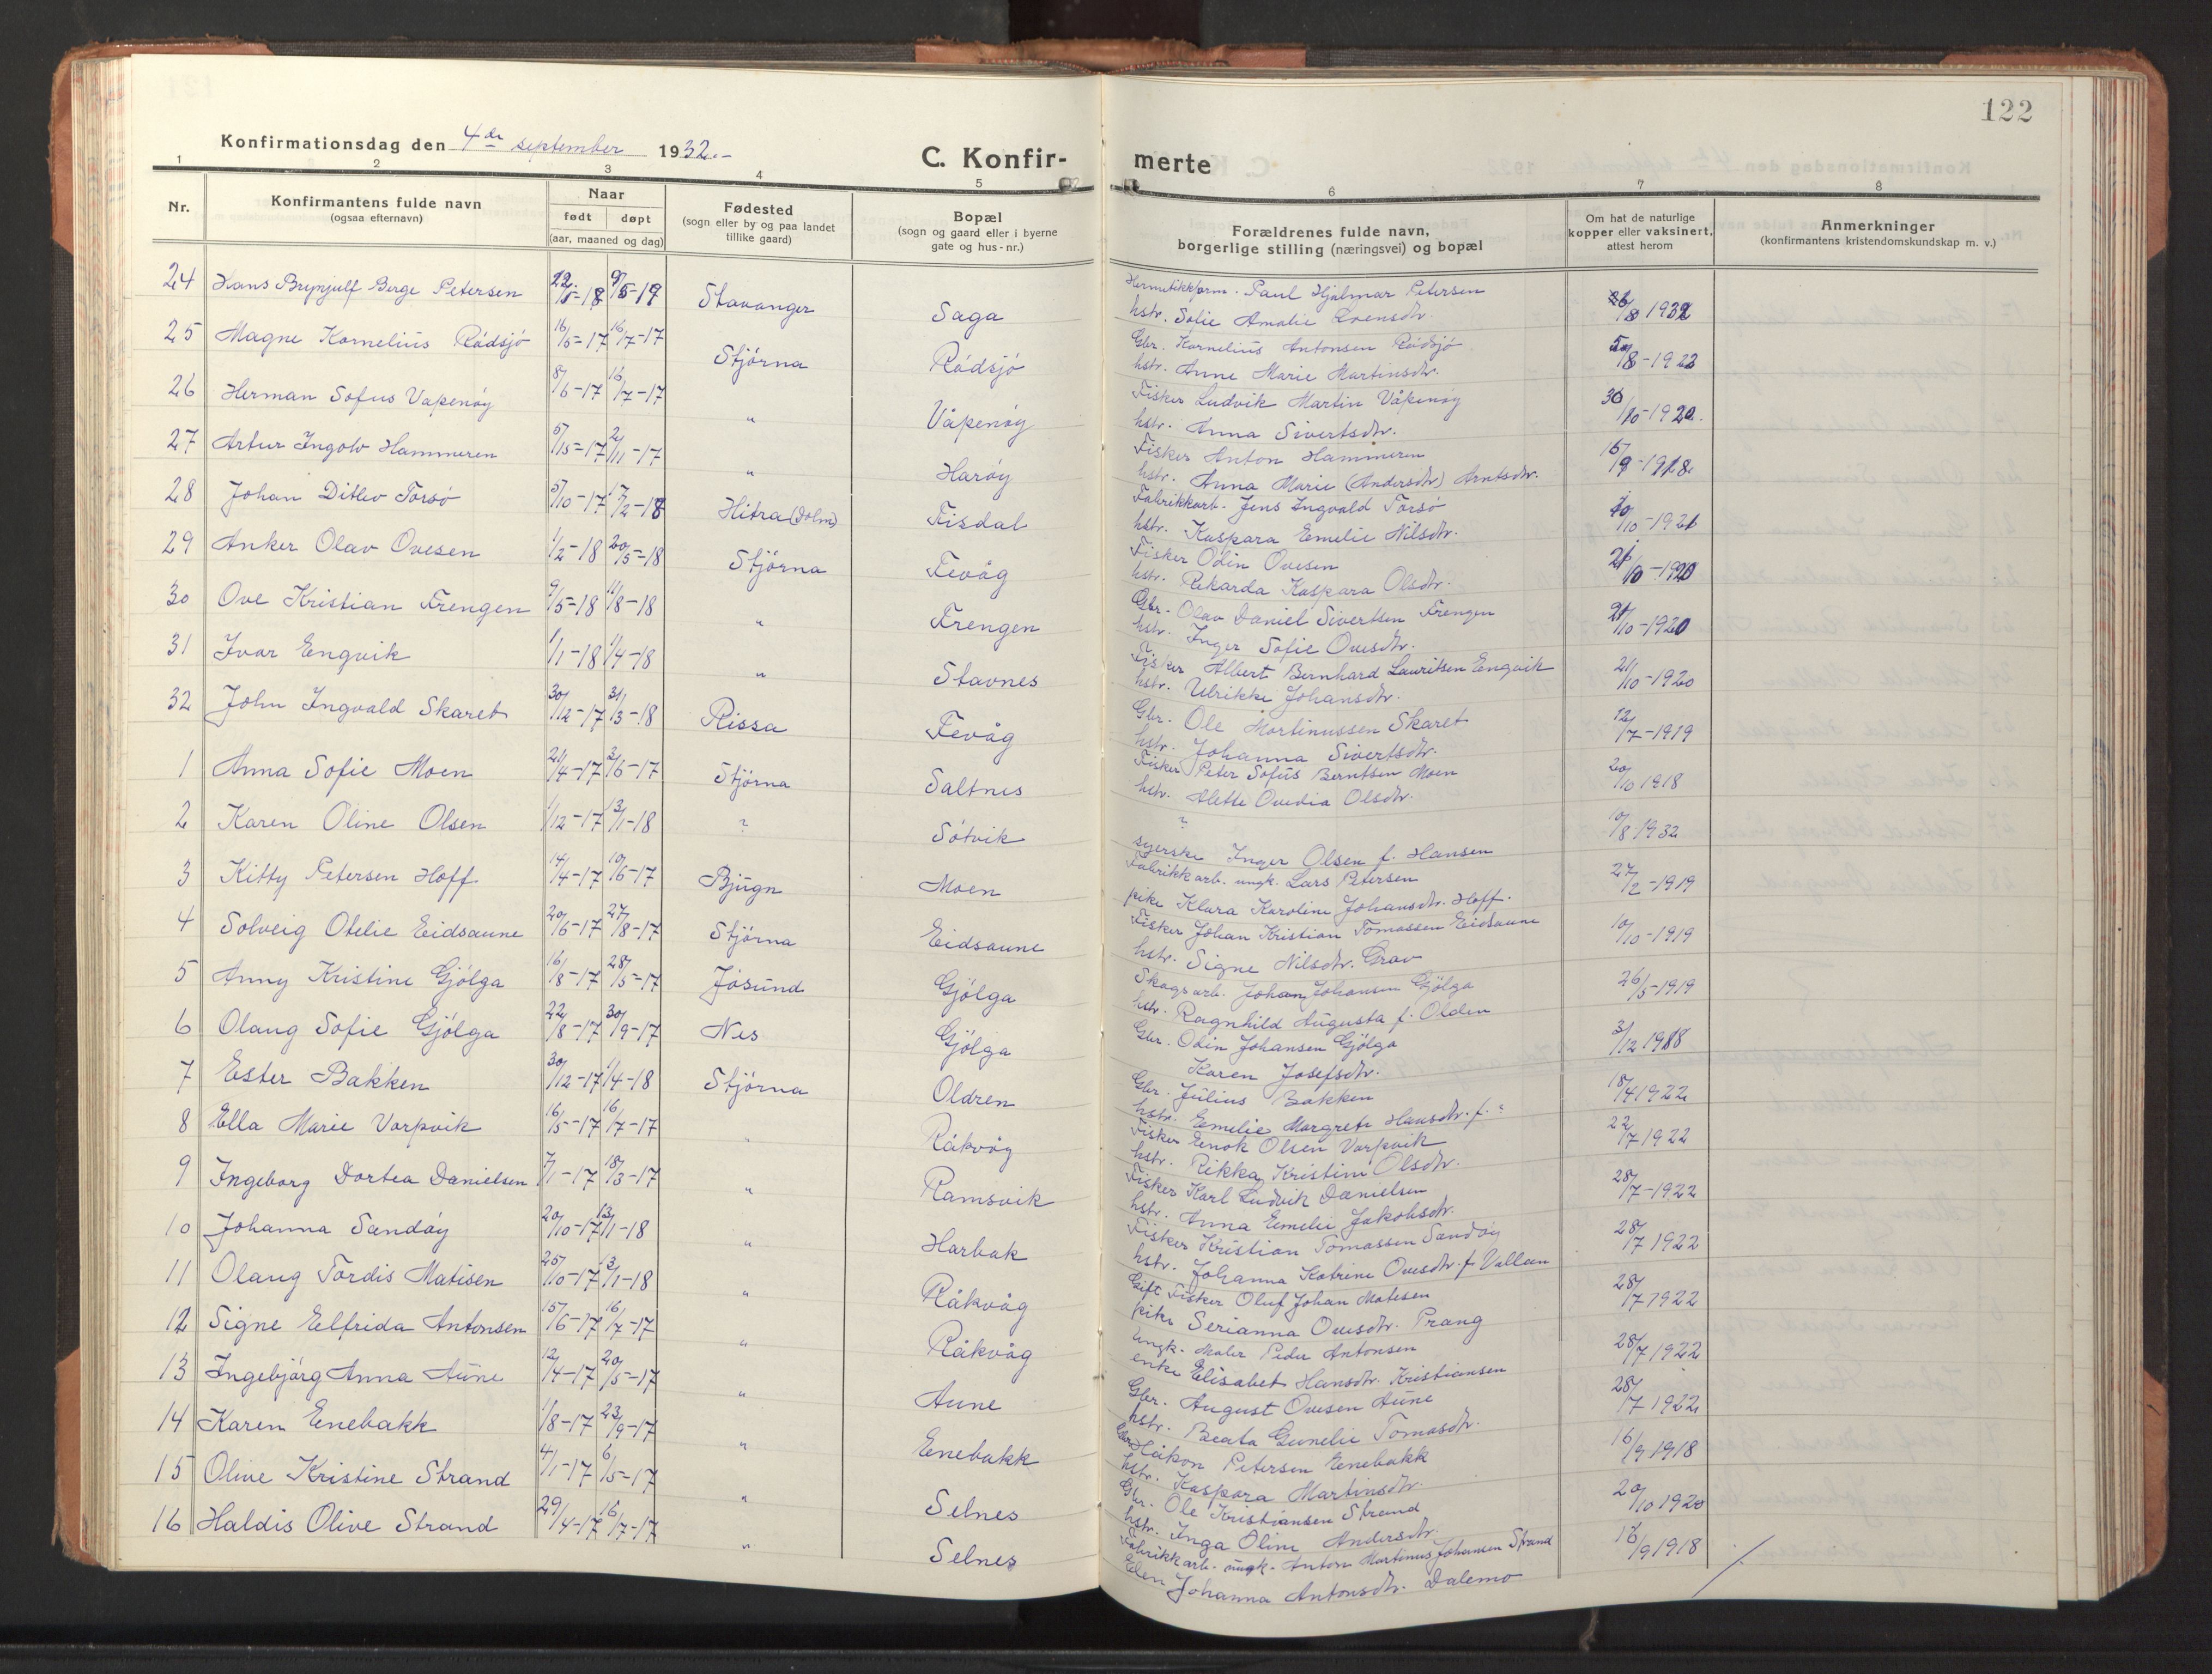 122
Konfirmationsdag den 4de september 1932.
C. Konfir- merte
1 2 3 4 5 6 7 8
Nr.
Konfirmantens fulde navn
(ogsaa efternavn)
Naar
født døpt
(aar, maaned og dag)
Fødested
(sogn eller by og paa landet
tillike gaard)
Bopæl
(sogn og gaard eller i byerne
gate og hus-nr.)
Forældrenes fulde navn,
borgerlige stilling (næringsvei) og bopæl
Om hat de naturlige
kopper eller vaksinert,
attest herom
Anmerkninger
(konfirmantens kristendomskundskap m. v.)
24 Hans Brynjulf Berge Petersen Stavanger Saga Paul Hjalmar Petersen
hstr. Sofie Amalie 8 1932
25 Magne Kornelius Rødsjø 16/6-17 16/7-17 Stjørna Rødsjø Gbr. Kornelius Antonsen Rødsjø
hstr. Anne Marie Martinsdtr. 8-1922
26 Herman Sofus Vapenøy 8/6-17 16/7-17 " Våpenøy Fisker Ludvik Martin Våpenøy
hstr. Anna Sivertsdtr. 30/10-1920.
27 Artur Ingolv Hammeren 2/11-17 " Harøy Fisker Anton Hammeren
hstr. Anna Marie (Andersdtr) Arntsdtr. 9-1918
28 Johan Ditlev Torsø 5/10-17 17/2-18 Hitra (Dolm) Fisdal Fabrikkarb. Jens Ingvald Torsø
hstr. Kaspara Emelie Nilsdtr. 10-1921
29 Anker Olav Ovesen 1/2-18 20/5-18 Stjørna Fevåg Fisker Odin Ovesen
hstr. Rikarda Kaspara Olsdtr. 21/10-1920
30 Ove Kristian Frengen 9/5-18 11/8-18 " Frengen Gbr. Olav Daniel Sivertsen Frengen
hstr. Inger Sofie Ovesdtr. 21/10-1920
31 Ivar Engvik 1/1-18 1/4-18 " Stavnes Fisker Albert Bernhard Lauritsen Engvik
hstr. Ulrikke Johansdtr. 21/10-1920
32 John Ingvald Skaret 30/12-17 31/3-18 Rissa Fevåg Gbr. Ole Martinussen Skaret
hstr. Johanna Sivertsdtr. 12/7-1919
1 Anna Sofie Moen 21/4-17 3/6-17 Stjørna Saltnes Fisker Peter Sofus Berntsen Moen
hstr. Alette Ovedia Olsdtr. 20/10 1918
2 Karen Oline Olsen 1/12-17 13/1-18 ? Søtvik ?
syerske Inger Olsen f. Hansen 10/8-1932
3 Kitty Petersen Hoff 14/4-17 10/6-17 Bjugn Moen Fabrikkarb. ungk. Lars Petersen
pike Klara Karoline Johansdtr. Hoff. 27/2-1919
4 Solveig Otelie Eidsaune 20/6-17 27/8-17 Stjørna Eidsaune Fisker Johan Kristian Tomassen Eidsaune
hstr. Signe Nilsdtr. Grav 10/10-1919
5 Anny Kristine Gjølga 16/8-17 28/5-17 Jøsund Gjølga Skogsarb. Johan Johansen Gjølga
hstr. Ragnhild Augusta f. Olden 26/5-1919
6 Olaug Sofie Gjølga 22/8-17 30/9-17 Nes Gjølga Gbr. Odin Johansen Gjølga
Karen Josefsdtr. 3/12 1918
7 Ester Bakken 30/12-17 1/4-18 Stjørna Oldren Gbr. Julius Bakken
hstr. Emelie Margrete Hansdtr. f. ? 18/4 1922
8 Ella Marie Varpvik 16/5-17 16/7-17 " Råkvåg Fisker Enok Olsen Varpvik
hstr. Rikka Kristine Olsdtr. 22/7 1922
9 Ingeborg Dortea Danielsen 7/1-17 18/3-17 " Ramsvik Fisker Karl Ludvik Danielsen
hstr. Anna Emelie Jakobsdtr. 28/7-1922
10 Johanna Sandøy 20/10-17 13/1-18 " Harbak Fisker Kristian Tomassen Sandøy
hstr. Johanna Katrine Ovesdtr. f. 28/7 1922
11 Olaug Tordis Matisen 25/10-17 13/1-18 " Råkvåg Gift Fisker Oluf Johan Matesen
pike Serianna Ovesdtr. Prang 28/7 1922
12 Signe Elfrida Antonsen 15/6-17 16/7-17 " Råkvåg Ungk. Maler Peder Antonsen
enke Elisabet Hansdtr. Kristiansen 28/7 1922
13 Ingebjørg Anna Aune 12/4-17 20/5-17 " Aune Gbr. August Ovesen Aune
hstr. Beata Gunelie Tomasdtr. 28/7 1922
14 Karen Enebakk 1/8-17 23/9-17 " Enebakk Gbr. Håkon Petersen Enebakk
hstr. Kaspara Martinsdtr. 16/9 1918
15 Olive Kristine Strand 4/1-17 6/5-17 " Selnes Gbr. Ole Kristiansen Strand
hstr. Inga Oline Andersdtr. 20/10 1920
16 Haldis Olive Strand 29/4-17 16/7-17 " Selnes Fabrikkarb. ungk. Anton Martinus Johansen Strand
Johanna Antonsdtr. Dalemo 16/9 1918